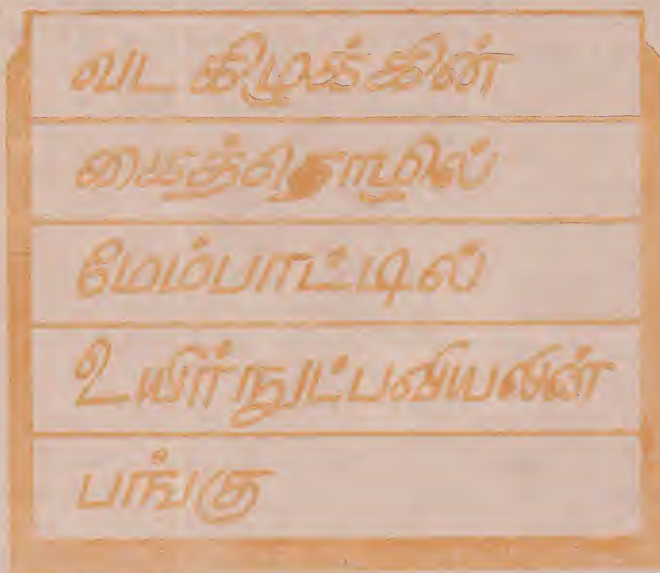 வட கிழக்கின்
கைத்தொழில்
மேம்பாட்டில்
உயிர்நுட்பவியலின்
பங்கு